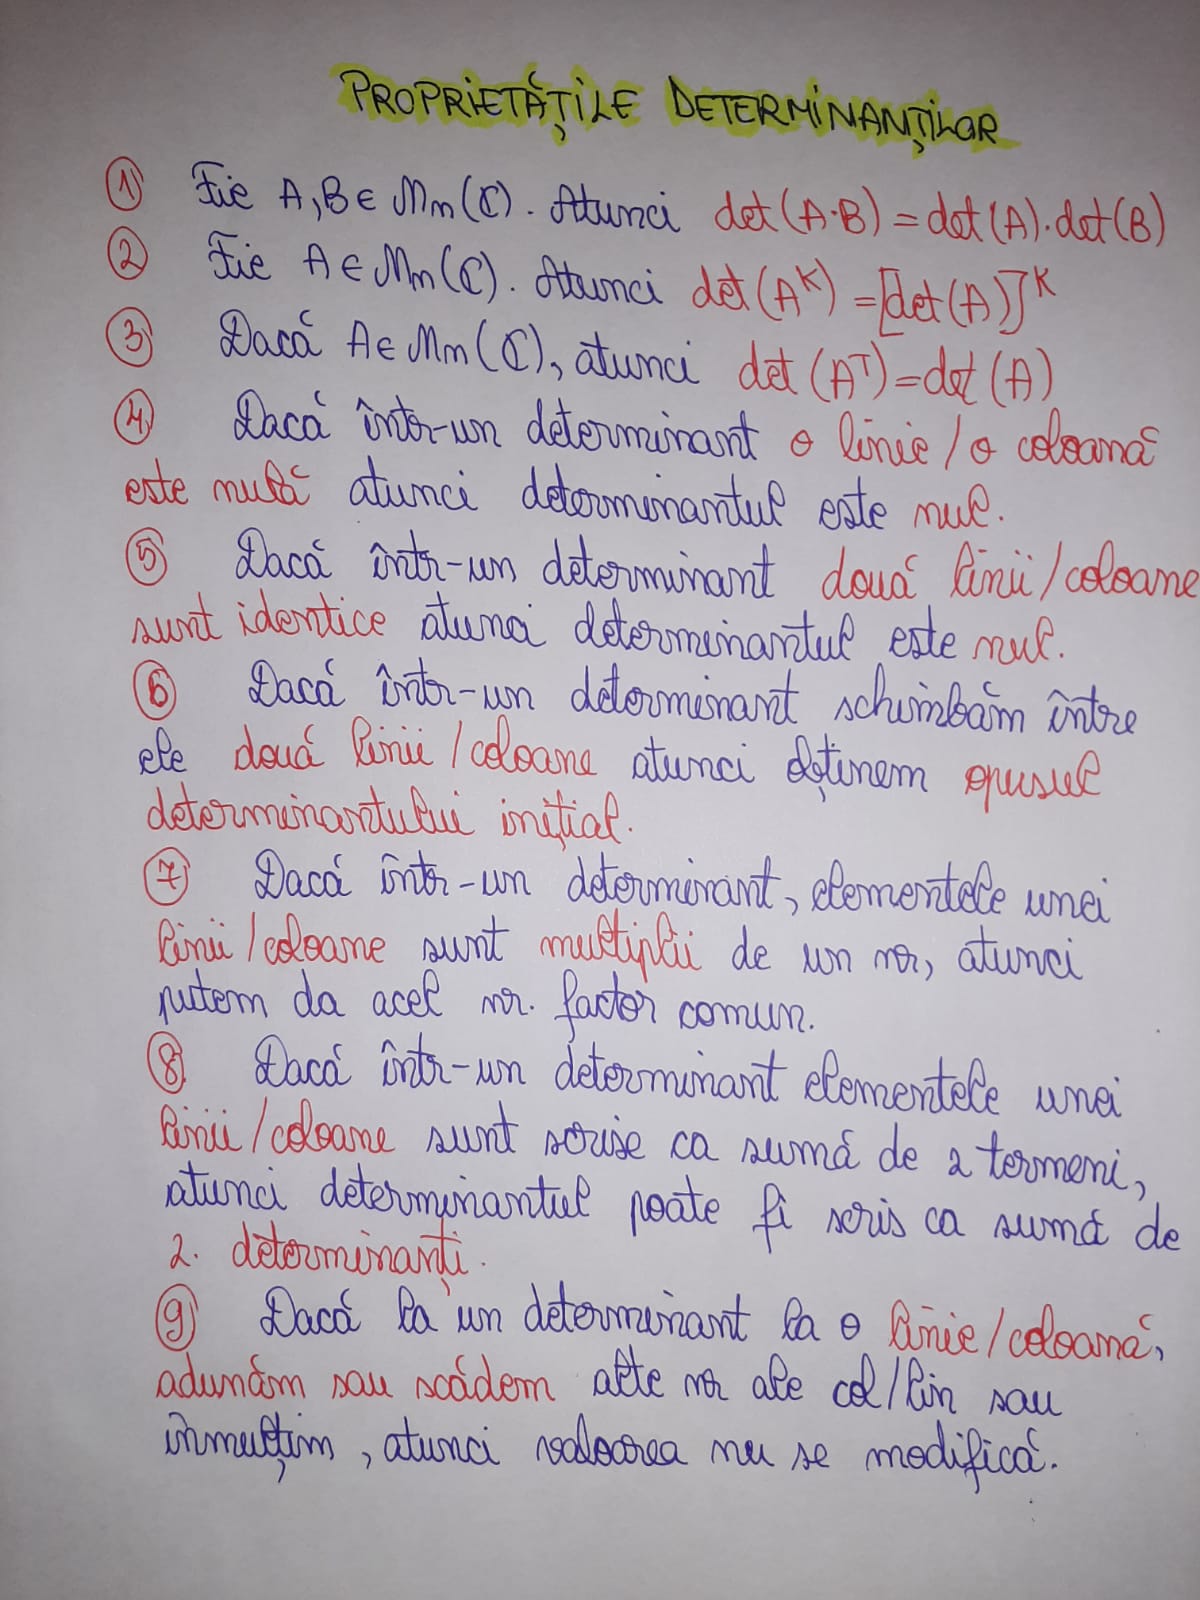 PROPRIETĂȚILE DETERMINANȚILOR
1) Fie A,B∈Mn(C). Atunci det(A·B)=det(A)·det(B)
2) Fie A∈Mn(C). Atunci det(A^K)=[det(A)]^K
3) Dacă A∈Mn(C), atunci det(A^T)=det(A)
4) Dacă într-un determinant o linie/o coloană
este nulă atunci determinantul este nul.
5) Dacă într-un determinant două linii/coloane
sunt identice atunci determinantul este nul.
6) Dacă într-un determinant schimbăm între
ele două linii/coloane atunci obținem opusul
determinantului inițial.
7) Dacă într-un determinant, elementele unei
linii/coloane sunt multiplii de un nr, atunci
putem da acel nr. factor comun.
8) Dacă într-un determinant elementele unei
linii/coloane sunt scrise ca sumă de 2 termeni,
atunci determinantul poate fi scris ca sumă de
2. determinanți.
9) Dacă la un determinant la o linie/coloană,
adunăm sau scădem alte nr ale col/lin sau
înmulțim, atunci valoarea nu se modifică.